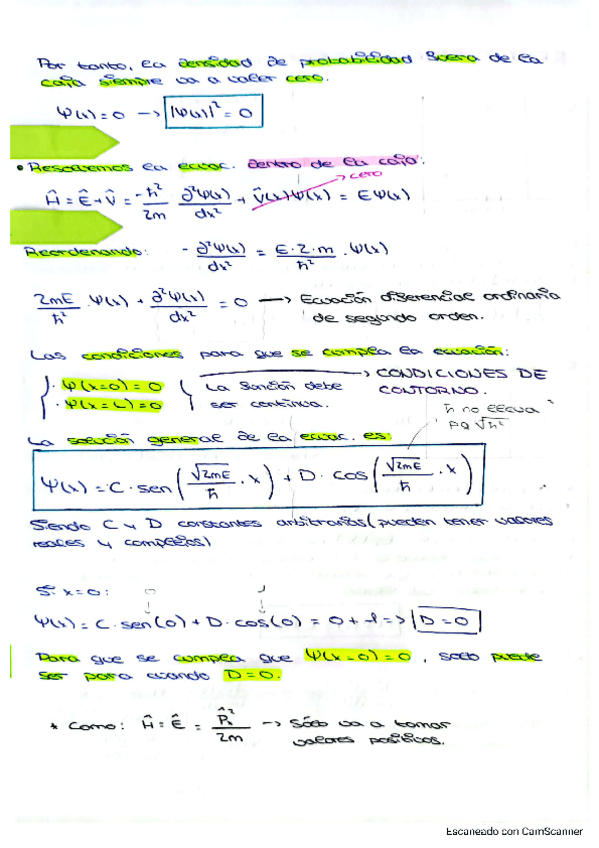 Por tanto, la densidad de probabilidad fuera de la
caja siempre va a valer cero.
Ψ(x) = 0 → |Ψ(x)|² = 0
• Resolvemos la ecuac. dentro de la caja:
→ cero
Ĥ = Ê + V̂ = -ħ²/2m ∂²Ψ(x)/dx² + V̂(x)Ψ(x) = EΨ(x)
Reordenando: - ∂²Ψ(x)/dx² = E·2·m/ħ² · Ψ(x)
2mE/ħ² · Ψ(x) + ∂²Ψ(x)/dx² = 0 → Ecuación diferencial ordinaria
de segundo orden.
Las condiciones para que se cumpla la ecuación:
· Ψ(x=0) = 0
· Ψ(x=L) = 0
La función debe
ser continua.
→ CONDICIONES DE
CONTORNO.
ħ no lleva ²
pq √ħ²
La solución general de la ecuac. es:
Ψ(x) = C · sen(√2mE/ħ · x) + D · cos(√2mE/ħ · x)
Siendo C y D constantes arbitrarias (pueden tener valores
reales y complejos)
Si x=0: 0 1
Ψ(x) = C · sen(0) + D · cos(0) = 0 + 1 => D = 0
Para que se cumpla que Ψ(x=0) = 0, solo puede
ser para cuando D=0.
* Como: Ĥ = Ê = P̂x²/2m → Sólo va a tomar
valores positivos.
Escaneado con CamScanner